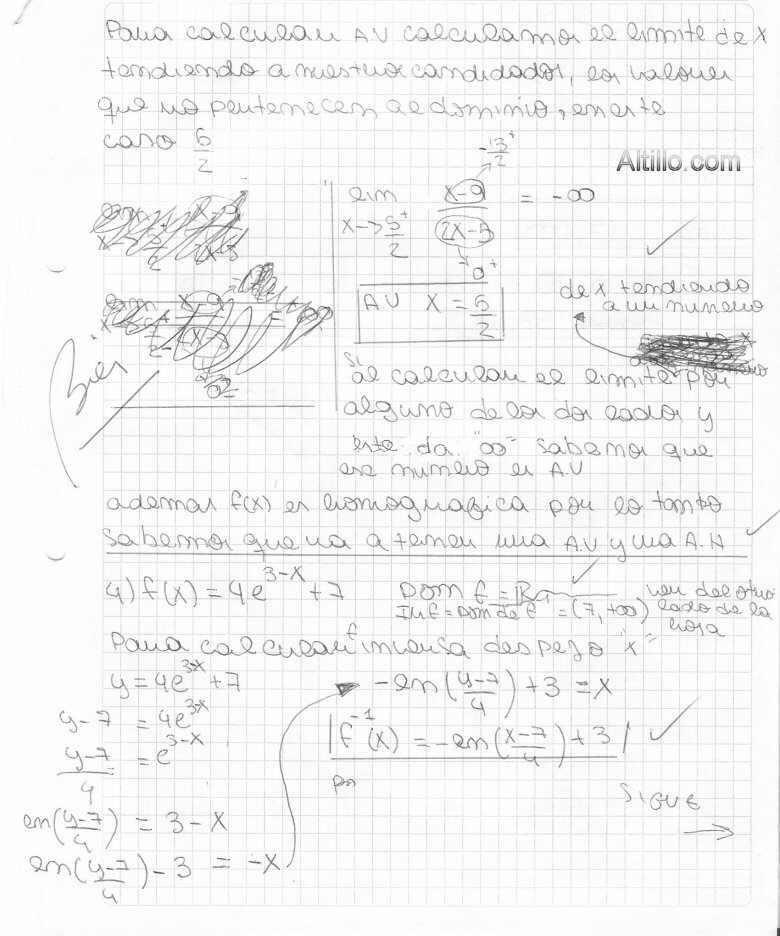 Para calcular AV calculamos el limite de x
tendiendo a nuestros candidatos, los valores
que no pertenecen al dominio, en este
caso 5/2
Altillo.com
-13/2⁺
lim x→5/2⁺ (x-9)/(2x-5) = -∞
→0⁺
AV x = 5/2
de x tendiendo
a un numero
Bien
Si al calcular el limite por
alguno de los dos lados y
este da "∞" sabemos que
ese numero es AV
ademas f(x) es homografica por lo tanto
sabemos que va a tener una A.V y una A.H
4) f(x) = 4e^(3-x) + 7
Dom f = R
Im f = Dom de f⁻¹ = (7, +∞)
ver del otro
lado de la
hoja
Para calcular f⁻¹ inversa despejo "x"
y = 4e^(3-x) + 7
y-7 = 4e^(3-x)
(y-7)/4 = e^(3-x)
ln((y-7)/4) = 3 - x
ln((y-7)/4) - 3 = -x
-ln((y-7)/4) + 3 = x
f⁻¹(x) = -ln((x-7)/4) + 3
SIGUE